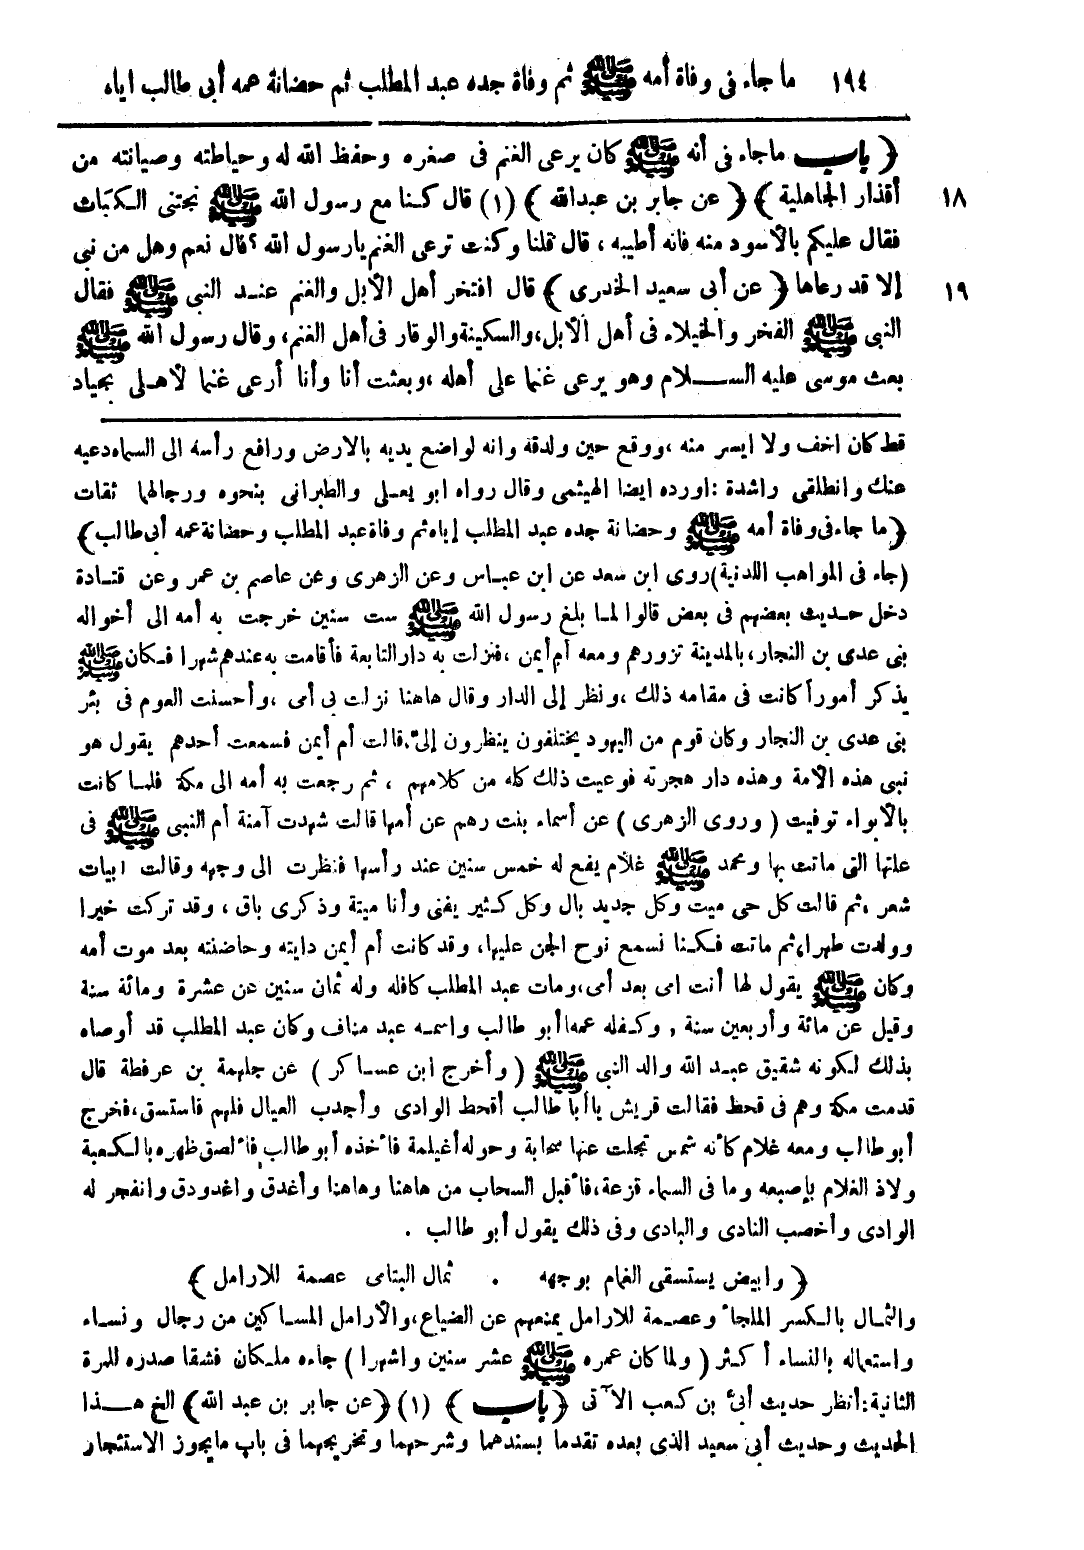 ١٩٤ ما جاء فى وفاة أمه ﷺ ثم وفاة جده عبد المطلب ثم حضانة عمه أبى طالب اياه
﴿ باب ماجاء فى أنه ﷺ كان يرعى الغنم فى صغره وحفظ الله له وحياطته وصيانته من
١٨ أقذار الجاهلية ﴾ ﴿ عن جابر بن عبدالله ﴾ (١) قال كنا مع رسول الله ﷺ نجتنى الكبَاث
فقال عليكم بالأسود منه فانه أطيبه ، قال قلنا وكنت ترعى الغنم يارسول الله ؟ قال نعم وهل من نبى
١٩ إلا قد رعاها ﴿ عن أبى سعيد الخدرى ﴾ قال افتخر أهل الأبل والغنم عند النبى ﷺ فقال
النبى ﷺ الفخر والخيلاء فى أهل الأبل،والسكينة والوقار فى أهل الغنم، وقال رسول الله ﷺ
بعث موسى عليه السلام وهو يرعى غنما على أهله ،وبعثت أنا وأنا أرعى غنما لأهلى بجياد
قط كان اخف ولا ايسر منه ،ووقع حين ولدته وانه لواضع يديه بالارض ورافع رأسه الى السماء دعيه
عنك وانطلقى راشدة :اورده ايضا الهيثمى وقال رواه ابو يعلى والطبرانى بنحوه ورجالهما ثقات
﴿ما جاء فى وفاة أمه ﷺ وحضانة جده عبد المطلب إياه ثم وفاة عبد المطلب وحضانة عمه أبى طالب﴾
(جاء فى المواهب اللدنية)روى ابن سعد عن ابن عباس وعن الزهرى وعن عاصم بن عمر وعن قتادة
دخل حديث بعضهم فى بعض قالوا لما بلغ رسول الله ﷺ ست سنين خرجت به أمه الى أخواله
بنى عدى بن النجار،بالمدينة تزورهم ومعه أم أيمن ،فنزلت به دار التابعة فأقامت به عندهم شهرا فكان ﷺ
يذكر أموراً كانت فى مقامه ذلك ،ونظر إلى الدار وقال هاهنا نزلت بى أمى ،وأحسنت العوم فى بئر
بنى عدى بن النجار وكان قوم من اليهود يختلفون ينظرون إلىّ.قالت أم أيمن فسمعت أحدهم يقول هو
نبى هذه الأمة وهذه دار هجرته فوعيت ذلك كله من كلامهم ، ثم رجعت به أمه الى مكة فلما كانت
بالأبواء توفيت ( وروى الزهرى ) عن أسماء بنت رهم عن أمها قالت شهدت آمنة أم النبى ﷺ فى
علتها التى ماتت بها ومحمد ﷺ غلام يفع له خمس سنين عند رأسها فنظرت الى وجهه وقالت ابيات
شعر ،ثم قالت كل حى ميت وكل جديد بال وكل كثير يفنى وأنا ميتة وذكرى باق ، وقد تركت خيرا
وولدت طهرا،ثم ماتت فكنا نسمع نوح الجن عليها، وقد كانت أم أيمن دايته وحاضنته بعد موت أمه
وكان ﷺ يقول لها أنت امى بعد أمى،ومات عبد المطلب كافله وله ثمان سنين عن عشرة ومائة سنة
وقيل عن مائة وأربعين سنة , وكفله عمه أبو طالب واسمه عبد مناف وكان عبد المطلب قد أوصاه
بذلك لكونه شقيق عبد الله والد النبى ﷺ ( وأخرج ابن عساكر ) عن جلهمة بن عرفطة قال
قدمت مكة وهم فى قحظ فقالت قريش ياأبا طالب أقحط الوادى وأجدب العيال فلهم فاستسق،فخرج
أبو طالب ومعه غلام كأنه شمس تجلت عنها سحابة وحوله أغيلمة فأخذه أبو طالب فألصق ظهره بالكعبة
ولاذ الغلام بإصبعه وما فى السماء قزعة،فأقبل السحاب من هاهنا وهاهنا وأغدق واغدودق وانفجر له
الوادى وأخصب النادى والبادى وفى ذلك يقول أبو طالب .
﴿ وابيض يستسقى الغمام بوجهه . ثمال اليتامى عصمة للارامل ﴾
والثمال بالكسر الملجأ وعصمة للارامل يمنعهم عن الضياع،والأرامل المساكين من رجال ونساء
واستعماله بالنساء أكثر ( ولما كان عمره ﷺ عشر سنين واشهرا ) جاءه ملكان فشقا صدره للمرة
الثانية:أنظر حديث أبىّ بن كعب الآتى ﴿ باب ﴾ (١) ﴿عن جابر بن عبد الله﴾ الخ هذا
الحديث وحديث أبى سعيد الذى بعده تقدما بسندهما وشرحهما وتخريجهما فى باب مايجوز الاستئجار